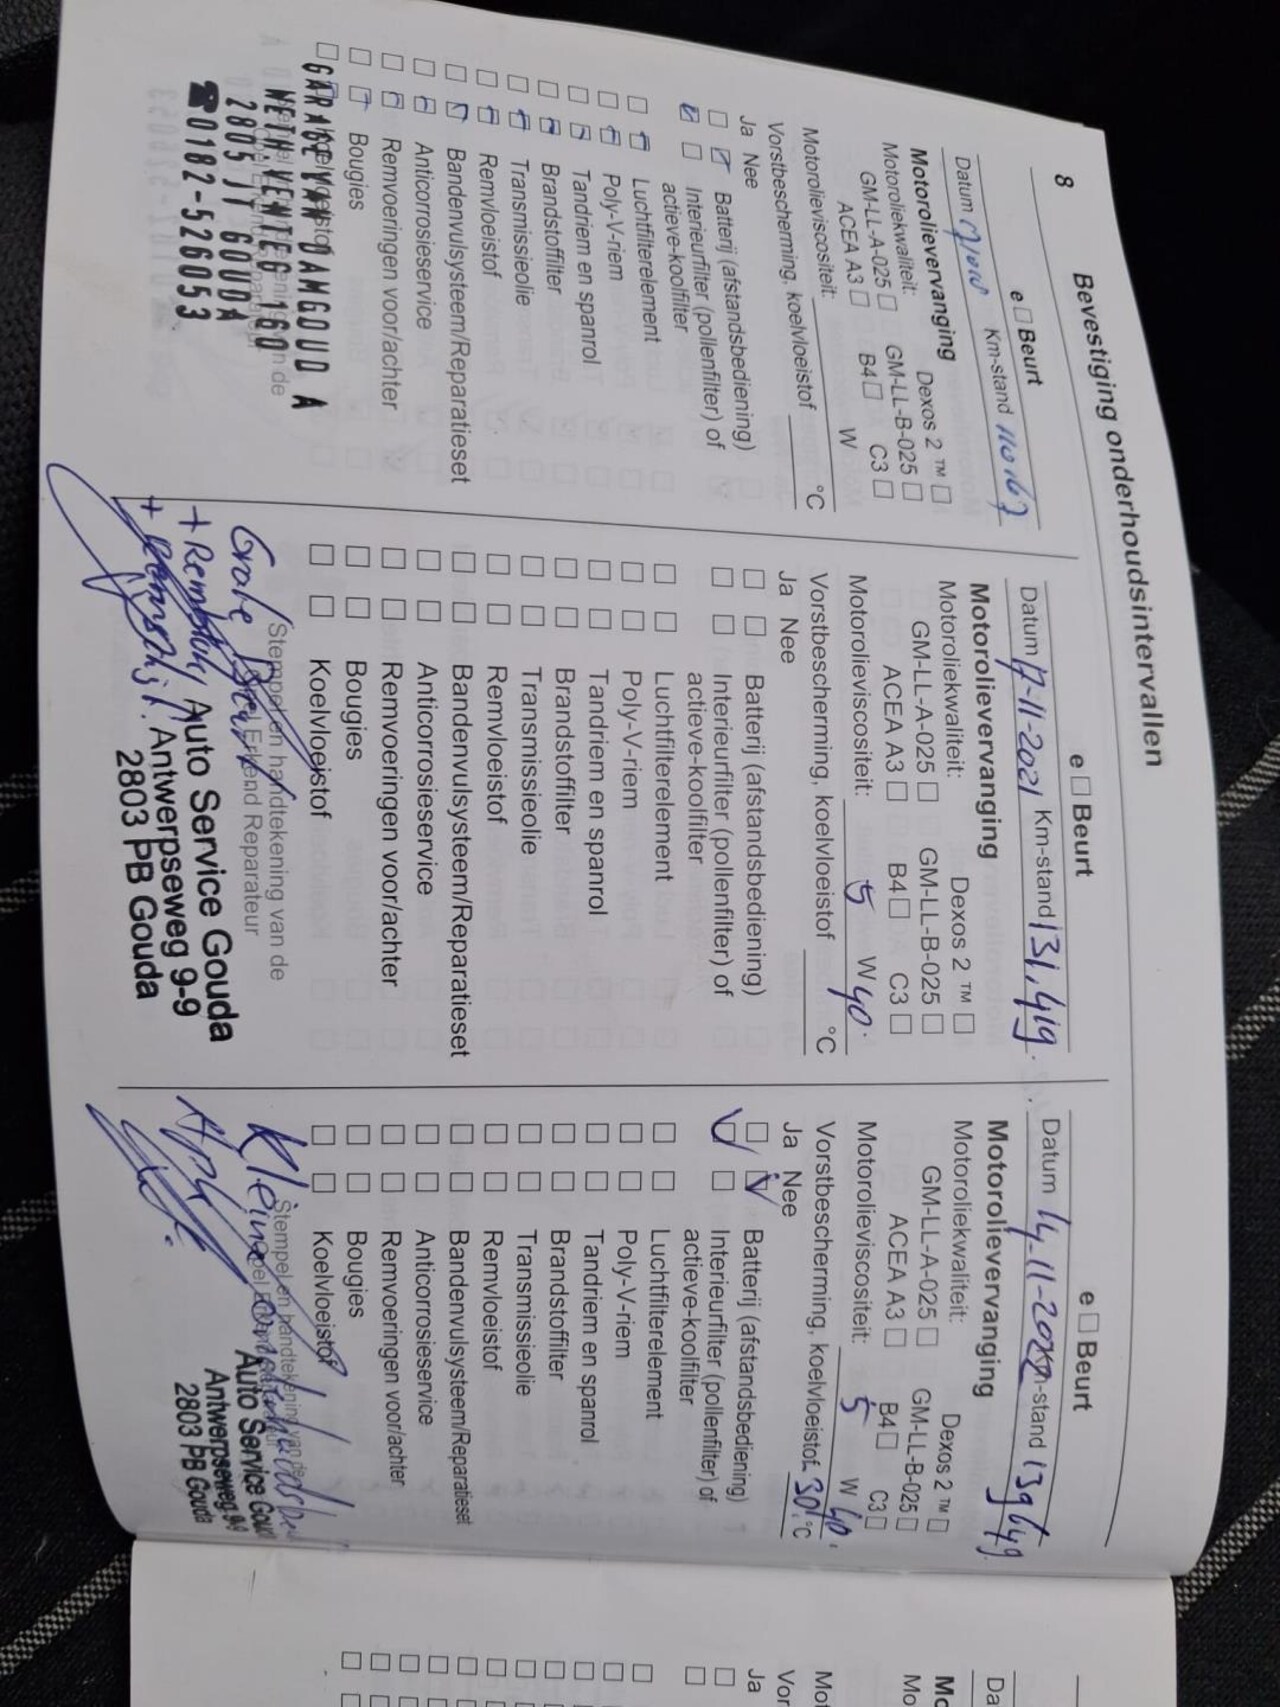 8 Bevestiging onderhoudsintervallen
e □ Beurt
Datum Km-stand
Motorolievervanging
Motoroliekwaliteit: Dexos 2 ™ □
GM-LL-A-025 □ GM-LL-B-025 □
ACEA A3 □ B4 □ C3 □
Motorolieviscositeit: W
Vorstbescherming, koelvloeistof °C
Ja Nee
Batterij (afstandsbediening)
Interieurfilter (pollenfilter) of
actieve-koolfilter
Luchtfilterelement
Poly-V-riem
Tandriem en spanrol
Brandstoffilter
Transmissieolie
Remvloeistof
Bandenvulsysteem/Reparatieset
Anticorrosieservice
Remvoeringen voor/achter
Bougies
Koelvloeistof
GARAGE VAN DAM GOUDA
WETH.VENTEG 160
2805 JT GOUDA
☎0182-526053
e □ Beurt
Datum 17-11-2021 Km-stand 131.419.
Motorolievervanging
Motoroliekwaliteit: Dexos 2 ™ □
GM-LL-A-025 □ GM-LL-B-025 □
ACEA A3 □ B4 □ C3 □
Motorolieviscositeit: 5 W 40.
Vorstbescherming, koelvloeistof °C
Ja Nee
Batterij (afstandsbediening)
Interieurfilter (pollenfilter) of
actieve-koolfilter
Luchtfilterelement
Poly-V-riem
Tandriem en spanrol
Brandstoffilter
Transmissieolie
Remvloeistof
Bandenvulsysteem/Reparatieset
Anticorrosieservice
Remvoeringen voor/achter
Bougies
Koelvloeistof
Stempel en handtekening van de
Opel Erkend Reparateur
Grote Beurt
Auto Service Gouda
Antwerpseweg 9-9
2803 PB Gouda
e □ Beurt
Datum 14-11-2022 Km-stand 139649
Motorolievervanging
Motoroliekwaliteit: Dexos 2 ™ □
GM-LL-A-025 □ GM-LL-B-025 □
ACEA A3 □ B4 □ C3 □
Motorolieviscositeit: 5 W 40.
Vorstbescherming, koelvloeistof -30 °C
Ja Nee
Batterij (afstandsbediening)
Interieurfilter (pollenfilter) of
actieve-koolfilter
Luchtfilterelement
Poly-V-riem
Tandriem en spanrol
Brandstoffilter
Transmissieolie
Remvloeistof
Bandenvulsysteem/Reparatieset
Anticorrosieservice
Remvoeringen voor/achter
Bougies
Koelvloeistof
Stempel en handtekening van de
Klein onderhoudsbeurt
APK
Auto Service Gouda
Antwerpseweg 9-9
2803 PB Gouda